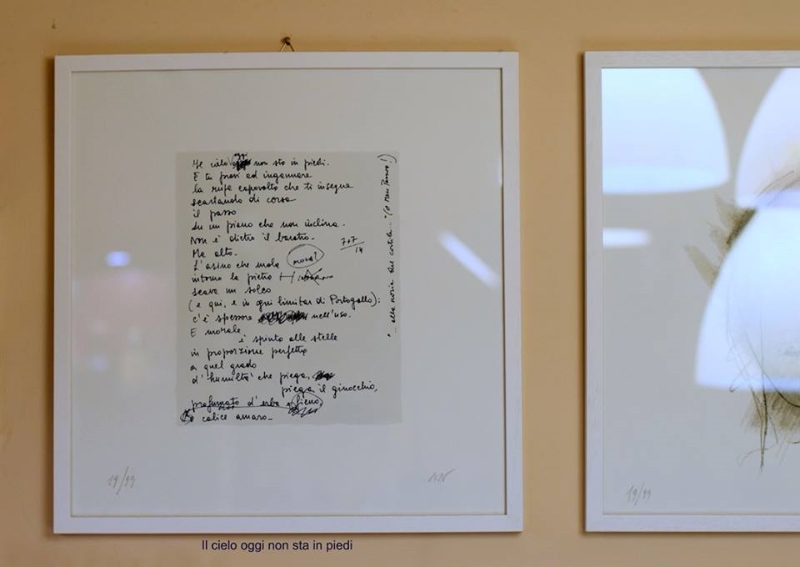 Il cielo oggi non sta in piedi.
E tu provi ad ingannare
la rupe capovolta che ti insegue
scartando di corsa
il passo
su un piano che non inclina.
Non è dietro il baratro.
Ma alto.
L'asino che mola mora?
7+7
14
intorno la pietra
scava un solco
(e qui, e in ogni limitar di Portogallo):
c'è spessore nell'uso.
E morale
è spinto alle stelle
in proporzione perfetta
a quel grado
d'humiltà che piega,
piega il ginocchio,
profumato d'erba fieno
o calice amaro.
alla
19/99
19/99
Il cielo oggi non sta in piedi